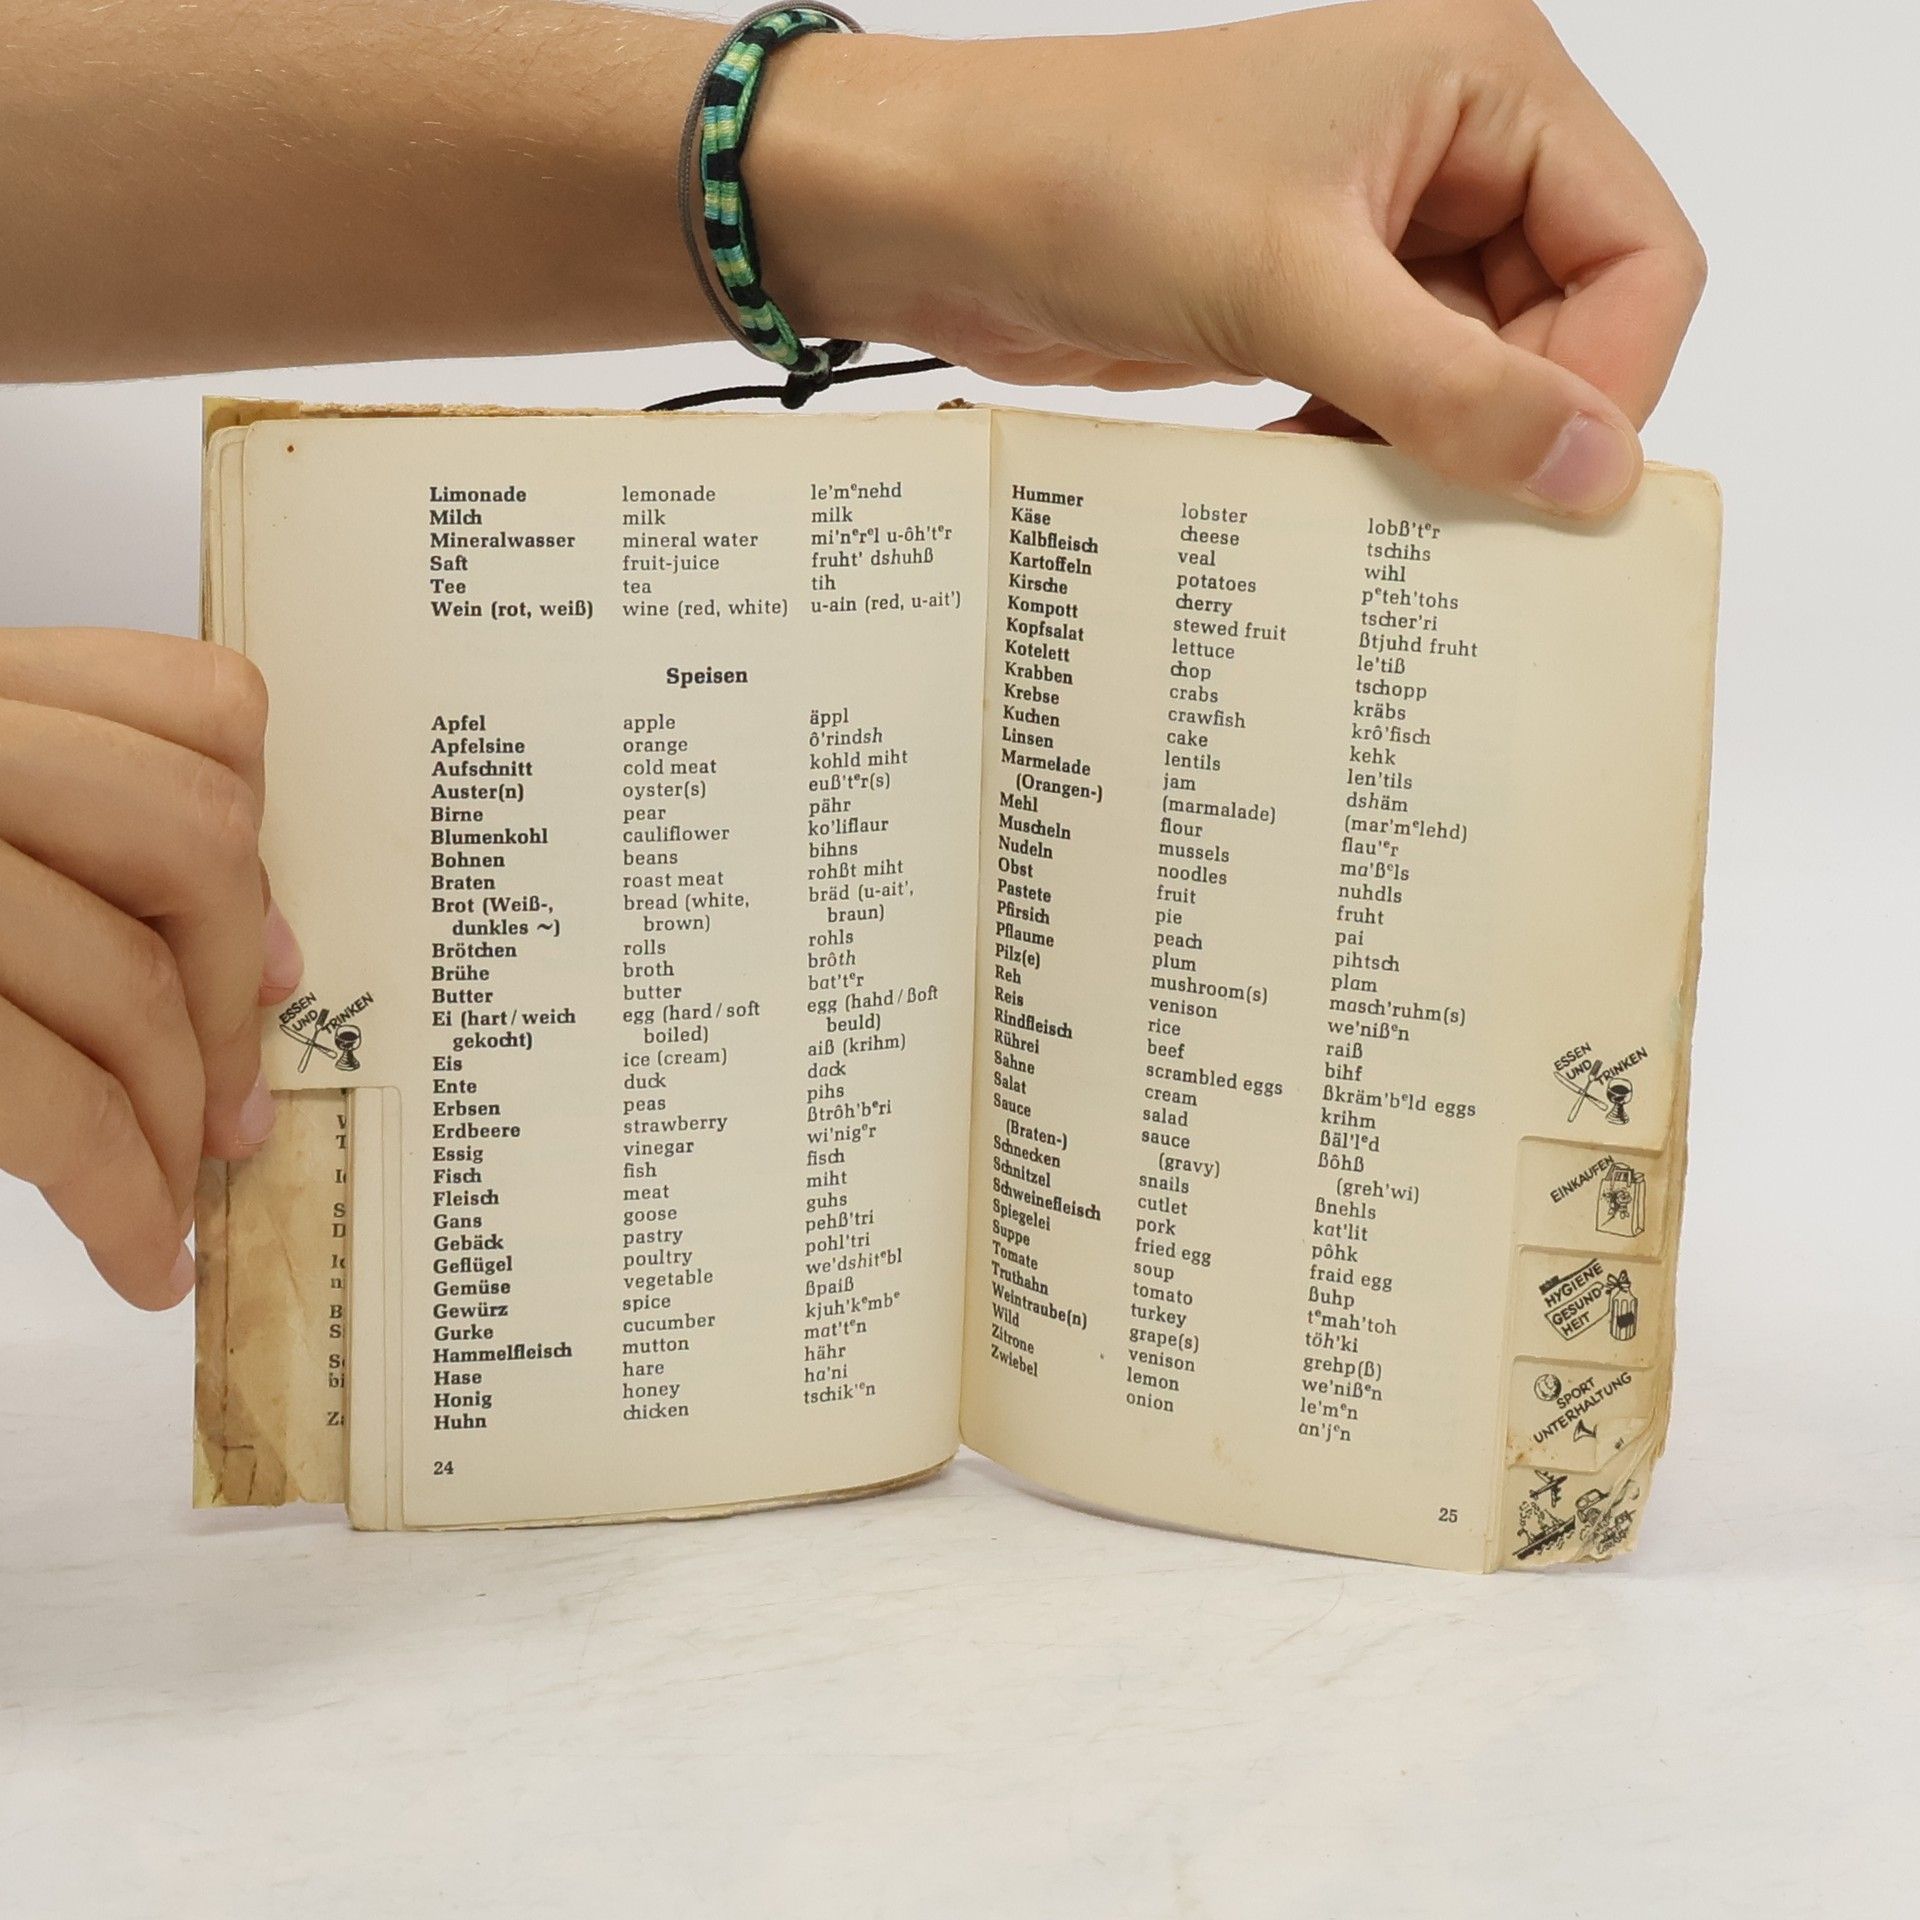 Limonade lemonade le'mᵉnehd
Milch milk milk
Mineralwasser mineral water mi'nᵉrᵉl u-ôh'tᵉr
Saft fruit-juice fruht' dshuhß
Tee tea tih
Wein (rot, weiß) wine (red, white) u-ain (red, u-ait')
Speisen
Apfel apple äppl
Apfelsine orange ô'rindsh
Aufschnitt cold meat kohld miht
Auster(n) oyster(s) euß'tᵉr(s)
Birne pear pähr
Blumenkohl cauliflower ko'liflaur
Bohnen beans bihns
Braten roast meat rohßt miht
Brot (Weiß-, bread (white, bräd (u-ait',
dunkles ~) brown) braun)
Brötchen rolls rohls
Brühe broth brôth
Butter butter bat'tᵉr
Ei (hart / weich egg (hard / soft egg (hahd / ßoft
gekocht) boiled) beuld)
Eis ice (cream) aiß (krihm)
Ente duck dack
Erbsen peas pihs
Erdbeere strawberry ßtrôh'bᵉri
Essig vinegar wi'nigᵉr
Fisch fish fisch
Fleisch meat miht
Gans goose guhs
Gebäck pastry pehß'tri
Geflügel poultry pohl'tri
Gemüse vegetable we'dshitᵉbl
Gewürz spice ßpaiß
Gurke cucumber kjuh'kᵉmbᵉ
Hammelfleisch mutton mat'tᵉn
Hase hare hähr
Honig honey ha'ni
Huhn chicken tschik'ᵉn
24
ESSEN
UND TRINKEN
Hummer lobster lobß'tᵉr
Käse cheese tschihs
Kalbfleisch veal wihl
Kartoffeln potatoes pᵉteh'tohs
Kirsche cherry tscher'ri
Kompott stewed fruit ßtjuhd fruht
Kopfsalat lettuce le'tiß
Kotelett chop tschopp
Krabben crabs kräbs
Krebse crawfish krô'fisch
Kuchen cake kehk
Linsen lentils len'tils
Marmelade jam dshäm
(Orangen-) (marmalade) (mar'mᵉlehd)
Mehl flour flau'ᵉr
Muscheln mussels ma'ßᵉls
Nudeln noodles nuhdls
Obst fruit fruht
Pastete pie pai
Pfirsich peach pihtsch
Pflaume plum plam
Pilz(e) mushroom(s) masch'ruhm(s)
Reh venison we'nißᵉn
Reis rice raiß
Rindfleisch beef bihf
Rührei scrambled eggs ßkräm'bᵉld eggs
Sahne cream krihm
Salat salad ßäl'lᵉd
Sauce sauce ßôhß
(Braten-) (gravy) (greh'wi)
Schnecken snails ßnehls
Schnitzel cutlet kat'lit
Schweinefleisch pork pôhk
Spiegelei fried egg fraid egg
Suppe soup ßuhp
Tomate tomato tᵉmah'toh
Truthahn turkey töh'ki
Weintraube(n) grape(s) grehp(ß)
Wild venison we'nißᵉn
Zitrone lemon le'mᵉn
Zwiebel onion an'jᵉn
25
ESSEN
UND TRINKEN
EINKAUFEN
HYGIENE
GESUND-
HEIT
SPORT
UNTERHALTUNG